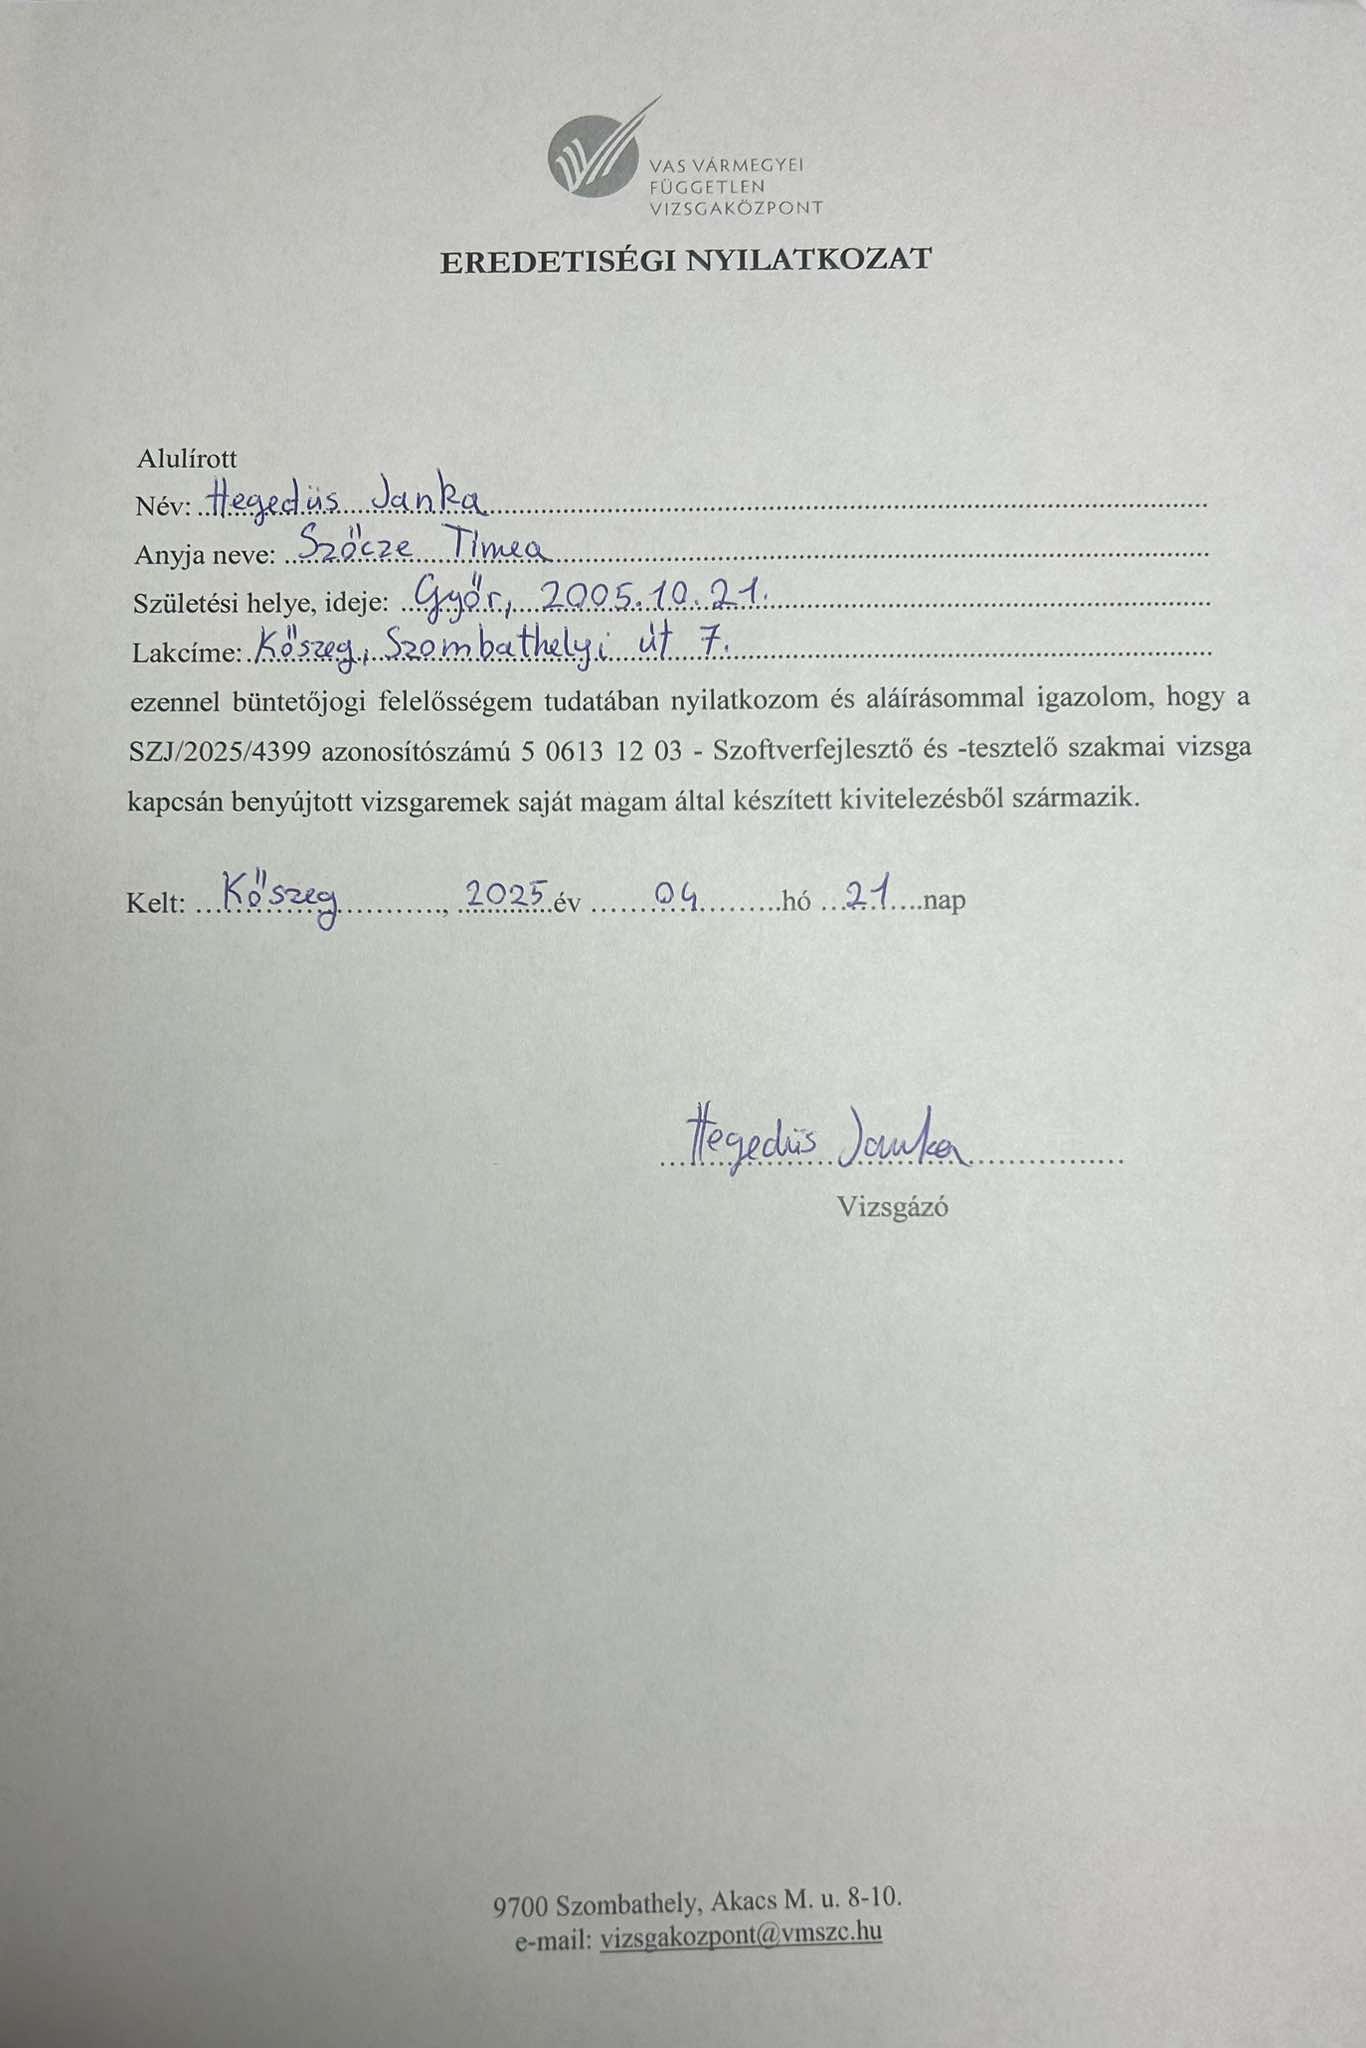 VAS VÁRMEGYEI
FÜGGETLEN
VIZSGAKÖZPONT
EREDETISÉGI NYILATKOZAT
Alulírott
Név: Hegedüs Janka
Anyja neve: Szőcze Tímea
Születési helye, ideje: Győr, 2005.10.21.
Lakcíme: Kőszeg, Szombathelyi út 7.
ezennel büntetőjogi felelősségem tudatában nyilatkozom és aláírásommal igazolom, hogy a
SZJ/2025/4399 azonosítószámú 5 0613 12 03 - Szoftverfejlesztő és -tesztelő szakmai vizsga
kapcsán benyújtott vizsgaremek saját magam által készített kivitelezésből származik.
Kelt: Kőszeg, 2025 év 04 hó 21 nap
Hegedüs Janka
Vizsgázó
9700 Szombathely, Akacs M. u. 8-10.
e-mail: vizsgakozpont@vmszc.hu